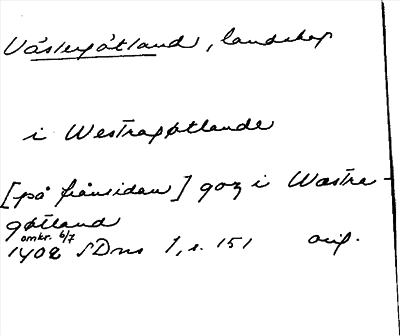 Västergötland, landskap
i Westragøtlande
[på frånsidan] goz i Wæstra-
gøtland
omkr. 6/7
1402 SDns 1, s. 151 orig.